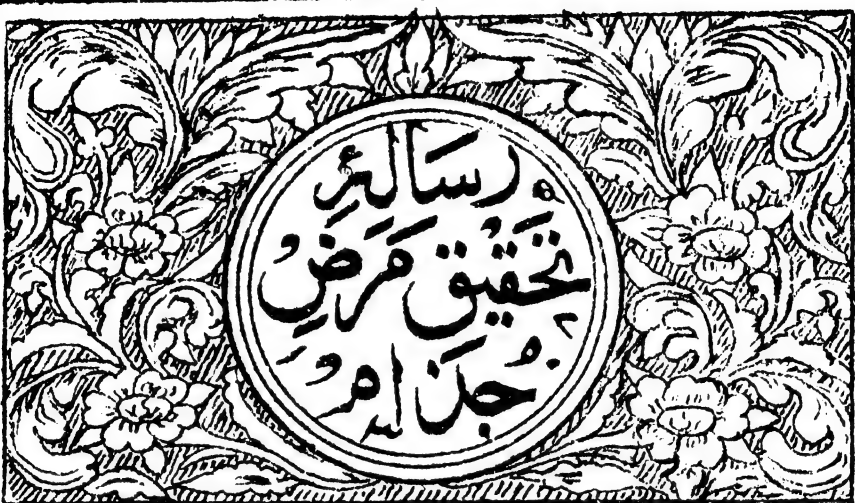 رسالۂ
تحقیق مرضِ
جُذام